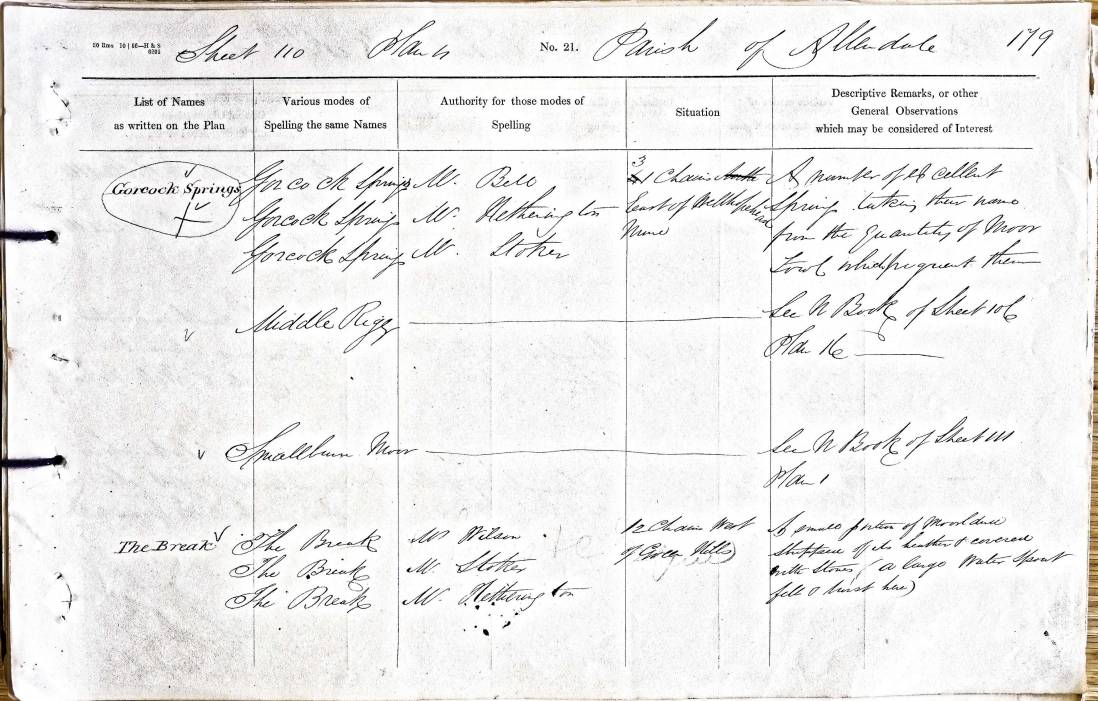 20 Rms 10 | 60—H & S
6201
Sheet 110 Plan No. 21. Parish of Allendale 179
List of Names
as written on the Plan
Various modes of
Spelling the same Names
Authority for those modes of
Spelling
Situation
Descriptive Remarks, or other
General Observations
which may be considered of Interest
Gorcock Springs Gorcock Springs Mr. Bell 3 1 Chains North A number of excellent
Gorcock Springs Mr. Hetherington East of Wellhopehead Springs taking their name
Mine from the quantity of Moor
Gorcock Springs Mr. Stoker Fowl which frequent them
Middle Rigg See N Book of Sheet 106
Plan 16
Smallburn Moor See N Book of Sheet 111
Plan 1
The Break The Break Mr Wilson 12 Chains West A small portion of Moorland
The Break Mr. Stoker of Green Hills of its heather & covered
with Stones (a large Water Spout
The Break Mr. Hetherington fell & burst here)